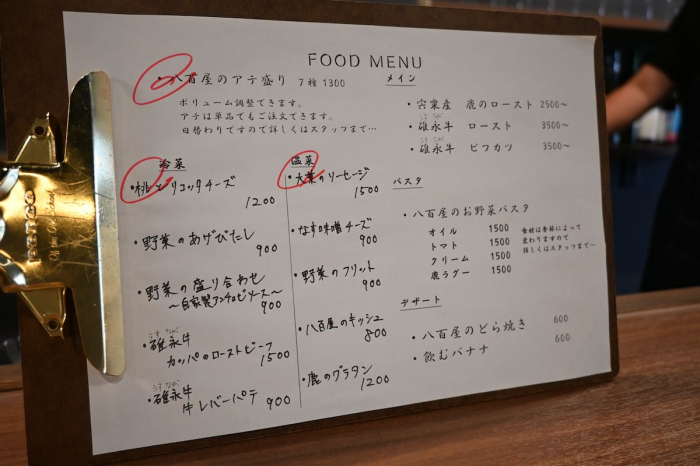 FOOD MENU
・八百屋のアテ盛り 7種 1300
ボリューム調整できます。
アテは単品でもご注文できます。
日替わりですので詳しくはスタッフまで…
冷菜
・桃とリコッタチーズ
1200
・野菜のあげびたし
900
・野菜の盛り合わせ
〜自家製アンチョビソース〜
900
うすなが
・碓永牛
カッパのローストビーフ
1500
うすなが
・碓永牛
牛レバーパテ 900
温菜
・大葉のソーセージ
1500
・なす味噌チーズ
900
・野菜のフリット
900
・八百屋のキッシュ
800
・鹿のグラタン
1200
メイン
・宍粟産 鹿のロースト 2500〜
うすなが
・碓永牛 ロースト 3500〜
うすなが
・碓永牛 ビフカツ 3500〜
パスタ
・八百屋のお野菜パスタ
オイル 1500
トマト 1500
クリーム 1500
鹿ラグー 1500
食材は季節によって
変わりますので
詳しくはスタッフまで…
デザート
・八百屋のどら焼き 600
・飲むバナナ 600